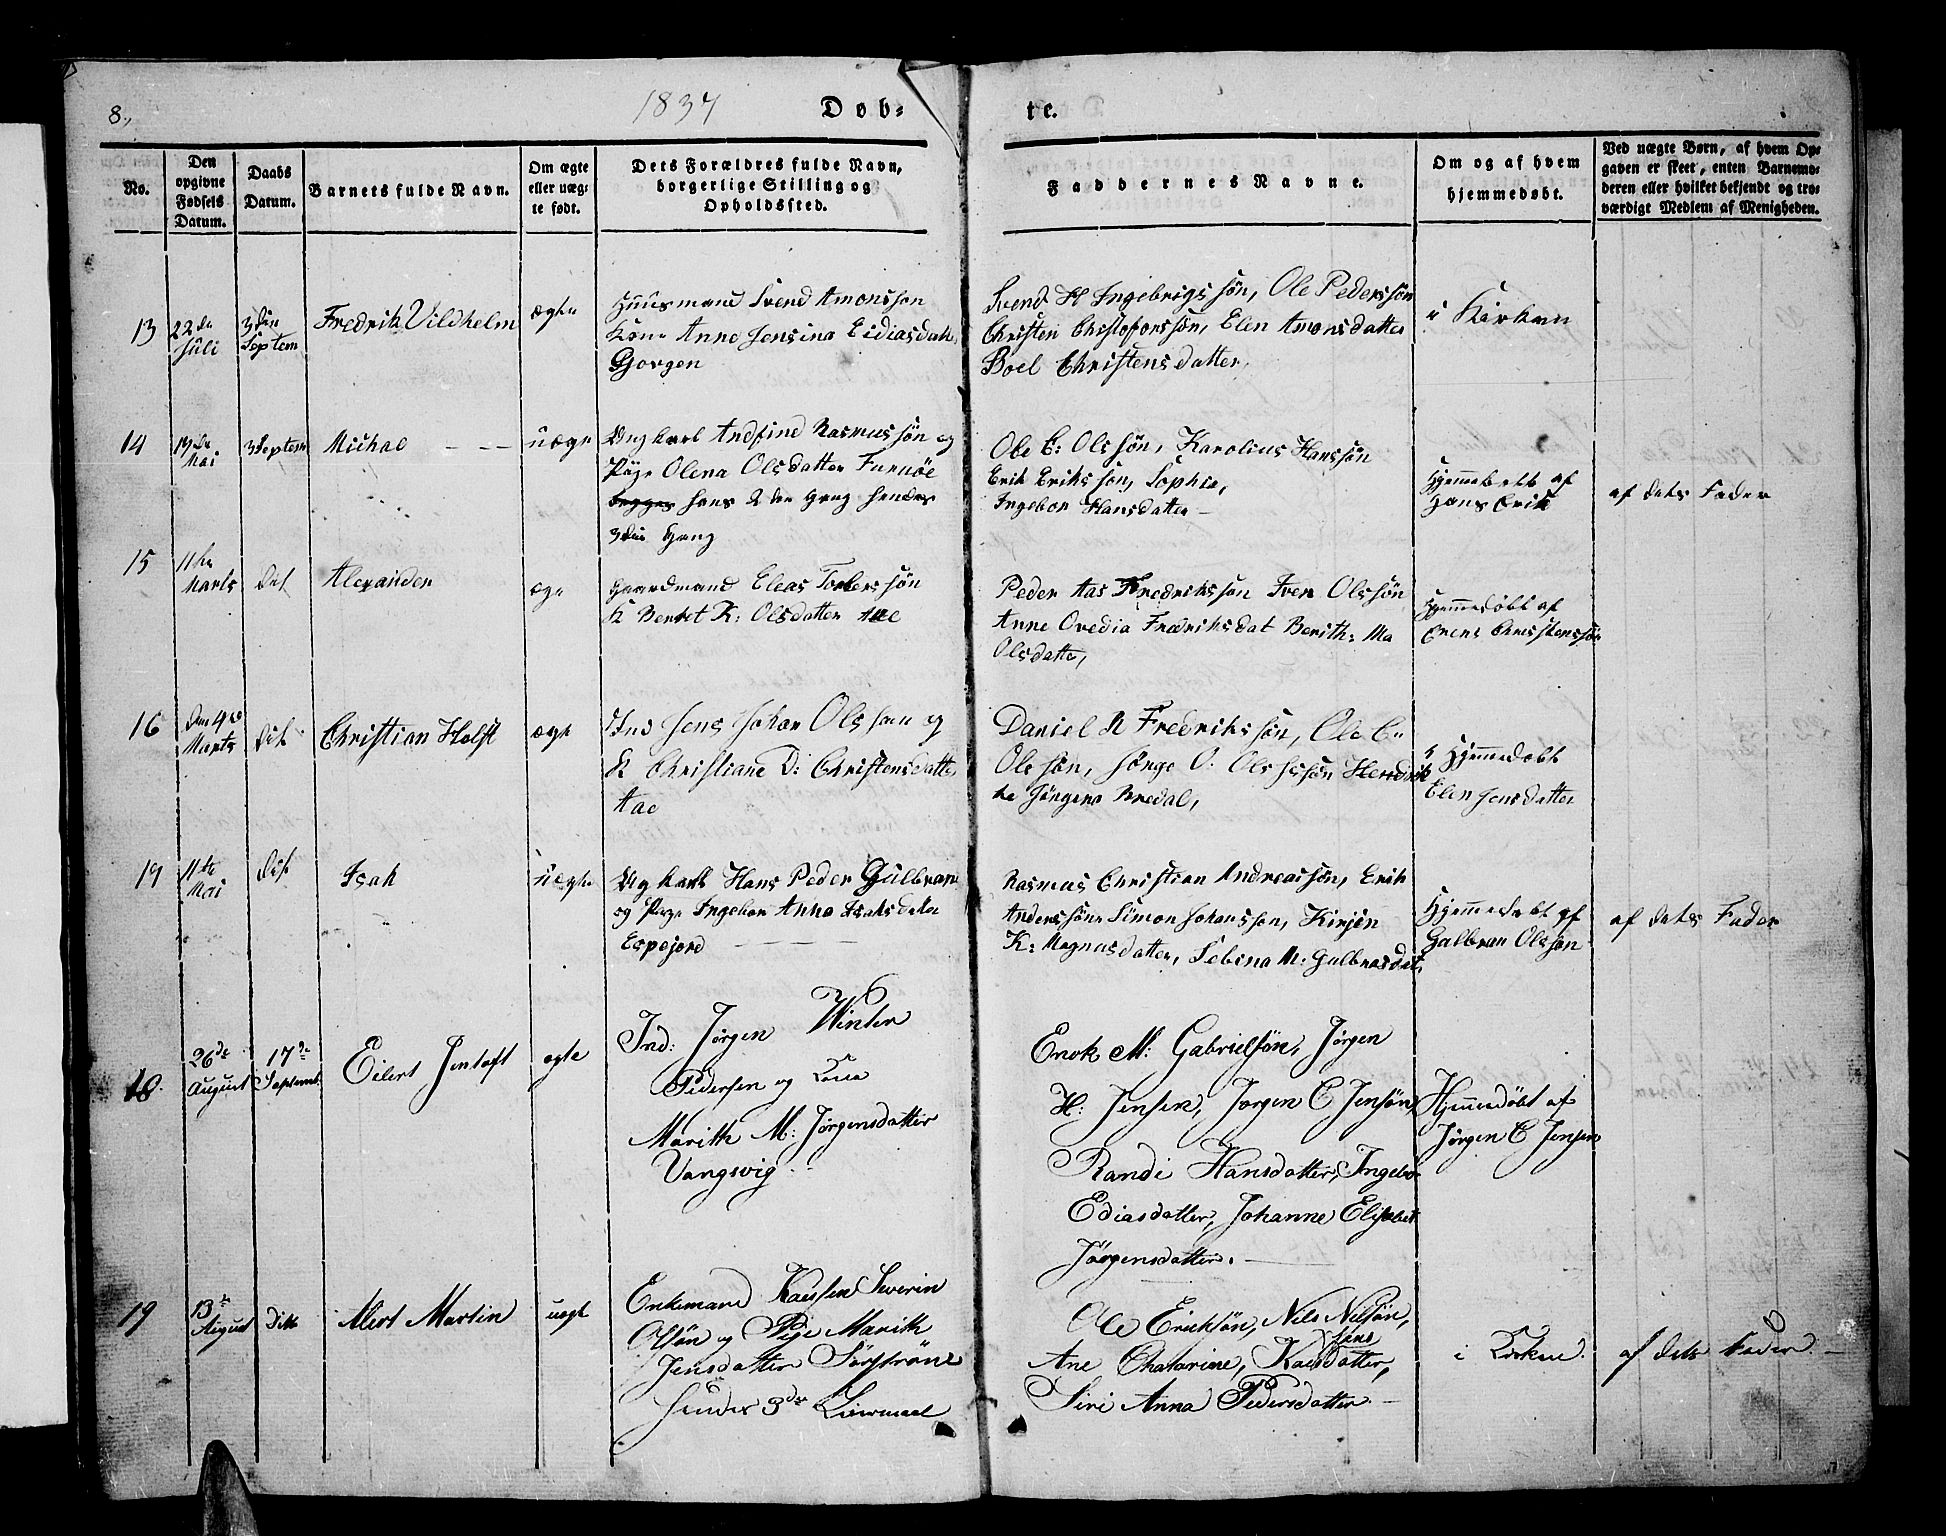 8. 1837 Døb-
te.
No.
Den opgivne Fødsels Datum.
Daabs Datum.
Barnets fulde Navn.
Om ægte eller uægte født.
Dets Forældres fulde Navn, borgerlige Stilling og Opholdssted.
Faddernes Navne.
Om og af hvem hjemmedøbt.
Ved uægte Børn, af hvem Opgaven er skeet, enten Barnemoderen eller hvilket bekjendt og troværdigt Medlem af Menigheden.
13
22de Juli
3die Septem
Fredrik Vildhelm
ægte
Huusmand Svend Amonsson
Kone Anne Jensina Eidiasdatt
Gjorgen
Svend H Ingebrigssøn, Ole Pederssøn
Christen Chrstoforssøn, Elen Amonsdatter
Boel Christensdatter,
i Kirken
14
17de Mai
3 Septem
Michal
uægte
Ungkarl Andfind Rasmussøn og
Pige Olena Olsdatter Furuøe
begges hans 2den Gang hendes
3die Gang
Ole C: Olssøn, Karolius Hanssøn
Erik Erikssøn, Sophie,
Ingebor Hansdatter
Hjemmedøbt af
Hans Erik
af dets Fader
15
11te Marts
dit
Alexander
ægte
Gaardmand Eleas Tollerssøn
K Beret K: Olsdatter Aae
Peder Aas Fredrikssøn Iver Olssøn
Anne Ovedia Fredriksdat Berith: Ma
Olsdatte,
Hjemmedøbt af
Erens Christenssøn
16
den 4de Marts
dit
Christian Holst
ægte
Ind Jens Johan Olssøn og
K Christiane D: Christensdatte
Aae
Daniel N Fredrikssøn, Ole C:
Olssøn, Jörge O: Olssøn Hendrik
ke Jörgine Bredal,
Hjemmedøbt
Elen Jensdatter
17
11te Mai
dit
Isak
uægte
Ungkarl Hans Peder Gulbran
og Pige Ingebor Anna Isaksdatte
Espejord
Rasmus Christian Andreassøn, Erik
Anderssøn Simon Johanssøn, Kirsten
K: Magnusdatter, Sebina M: Gulbransdat,
Hjemmedøbt af
Gulbran Olssøn
af dets Fader
18.
26de August
17de Septemb.
Eilert Jentoft
ægte
Ind: Jørgen Winter
Pedersen og Kone
Marith M: Jörgensdatter
Vangsvig
Enok M: Gabrielsøn, Jørgen
H: Jensen, Jørgen C Jensøn,
Randi Hansdatter, Ingebor
Ediasdatter, Johanne Elisabet
Jørgensdatter.
Hjemmedøbt af
Jørgen C Jensen
19
13de August
ditto
Alert Martin
uægte
Enkemand Severin
Olssøn og Pige Marith
Jensdatter Sørstrøne
hendes 3de Leiermaal
Ole Ericksøn, Nils Nilssøn,
Ane Chatarine, datter,
Siri Anna Pedersdatter
i Kirken.
af dets Fader.